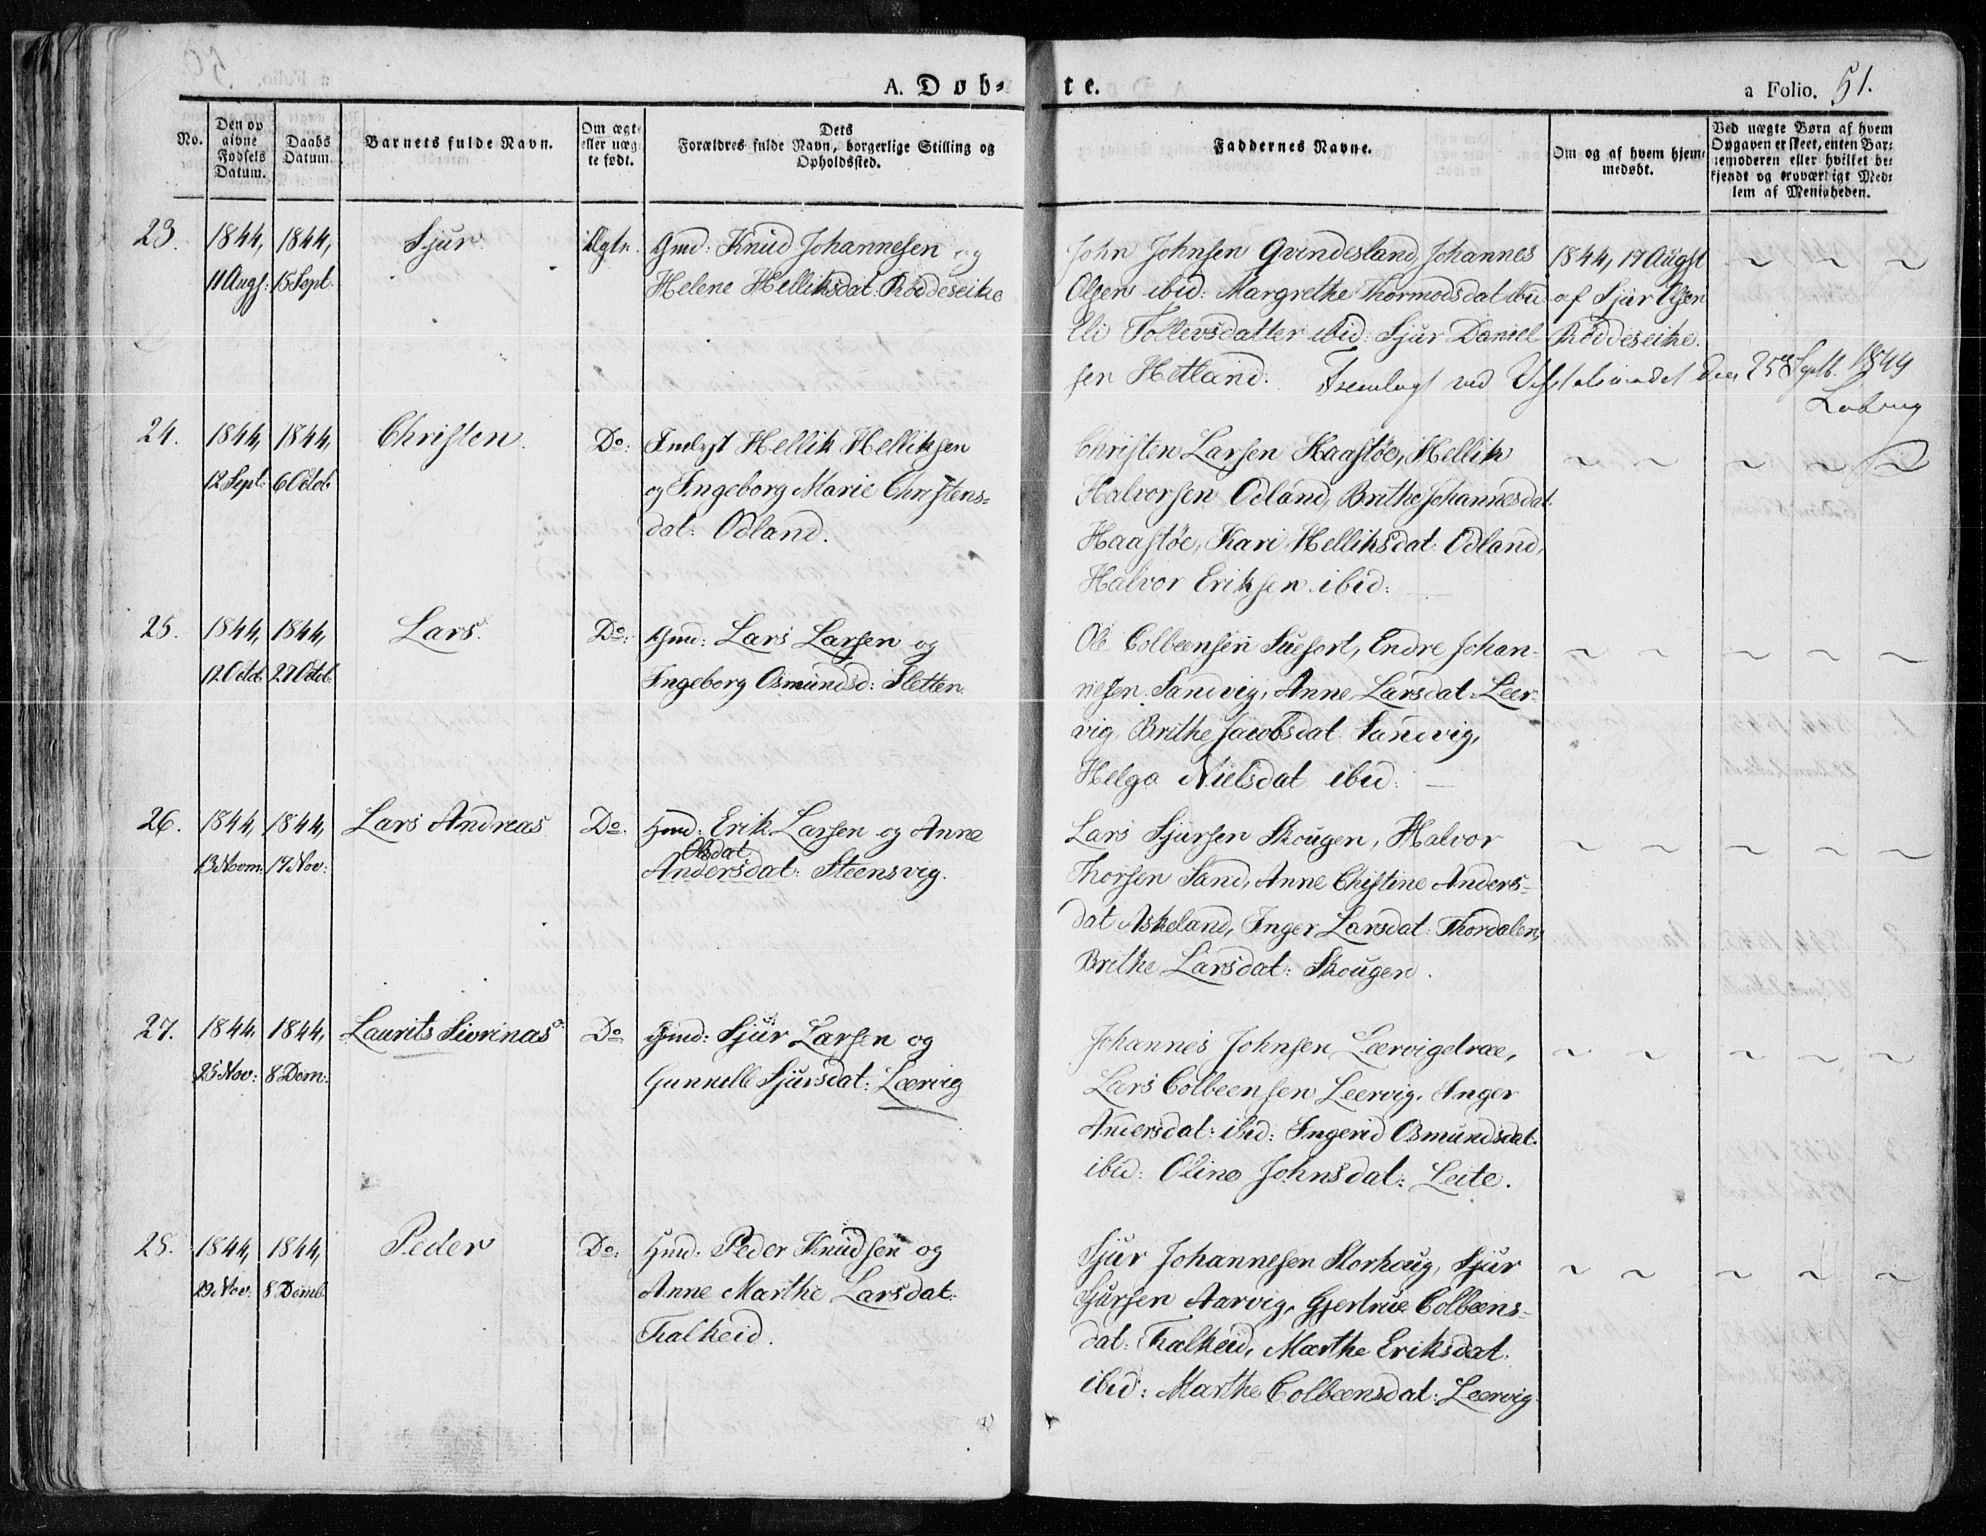 A. Døb-te.
a Folio. 51.
No.
Den op
givne
Fødsels
Datum.
Daabs
Datum.
Barnets fulde Navn.
Om ægte
eller uæg
te født.
Dets
Forældres fulde Navn, borgerlige Stilling og
Opholdssted.
Faddernes Navne.
Om og af hvem hjem-
medøbt.
Ved uægte Børn af hvem
Opgaven er skeet, enten Bar-
nemoderen eller hvilket be-
kjendt og troværdigt Med-
lem af Menigheden.
23.
1844,
11 Augs:
1844,
15 Sept:
Sjur
Ægte.
Gmd: Knud Johannesen og
Helene Helliksdat: Røddeseike
John Johnsen Qvindesland, Johannes
Olsen ibid: Margrethe Thormodsdat ibid
Eli Tollevsdatter ibid: Sjur Daniel
sen Hetland:
1844, 17 Augst
af Sjur Olsen
Røddeseike.
Fremlagt ved den 25de Septb. 1844
24.
1844,
12 Sept:
1844,
6 Octob
Christen
Do:
Inderst Hellik Helliksen
og Ingeborg Marie Christens-
dat: Odland.
Christen Larsen Haastøe, Hellik
Halvorsen Odland, Brithe Johannesdat.
Haastøe, Kari Helliksdat: Odland,
Halvor Eriksen ibid:
25.
1844,
12 Octb.
1844,
27 Octob.
Lars.
Do:
Gmd: Lars Larsen og
Ingeborg Osmundsd: Sletten.
Ole Colbeensen Suefort, Endre Johan-
nesen Sandvig, Anne Larsdat Leer-
vig, Brithe Jacobsdat Sandvig,
Helga Nielsdat ibid:
26.
1844,
13 Novm:
1844,
17 Nov:
Lars Andreas
Do.
Hmd: Erik Larsen og Anne
Olsdat
Andersdat: Steensvig.
Lars Sjursen Skougen, Halvor
Thorsen Sand, Anne Christine Anders-
dat Askeland, Inger Larsdat: Thordalen,
Brithe Larsdat: Skougen.
27.
1844,
25 Nov:
1844,
8 Dcm:
Laurits Sivrinas
Do
Gmd: Sjur Larsen og
Gunnelle Sjursdat: Leervig
Johannes Johnsen Leervigetræe,
Lars Colbeensen Leervig, Anger
Andersdat: ibid: Ingerid Osmundsdat.
ibid: Oline Johnsdat: Leite.
28.
1844,
29 Nov:
1844,
8 Dcmb.
Peder
Do:
Hmd: Peder Knudsen og
Anne Marthe Larsdat:
Falkeid.
Sjur Johannesen Storhoug, Sjur
Sjursen Aarvig, Gjertrue Colbeens-
dat: Falkeid, Marthe Eriksdat.
ibid: Marthe Colbeensdat: Leervig